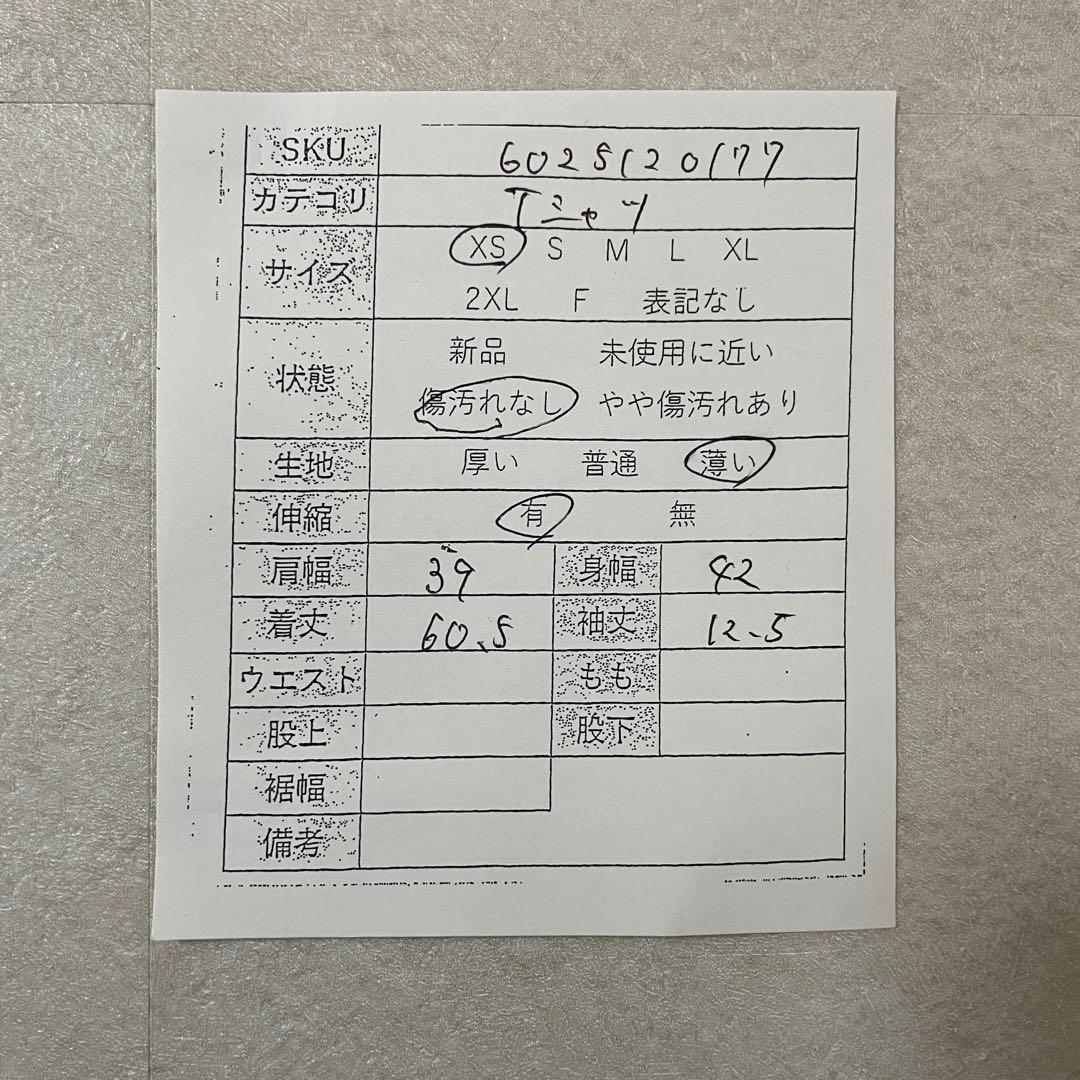 SKU 6025120177
カテゴリ Tシャツ
サイズ XS S M L XL
2XL F 表記なし
状態 新品 未使用に近い
傷汚れなし やや傷汚れあり
生地 厚い 普通 薄い
伸縮 有 無
肩幅 39 身幅 42
着丈 60.5 袖丈 12.5
ウエスト もも
股上 股下
裾幅
備考